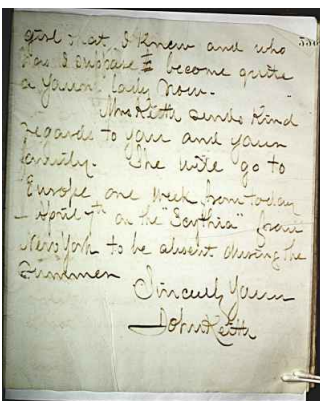 girl that I knew and who
has I suppose become quite
a young lady now.
Mrs Keith sends kind
regards to you and your
family. She will go to
Europe one week from today
– April 7th on the "Scythia" from
New York to be absent during the
Summer
Sincerely Yours
John Keith